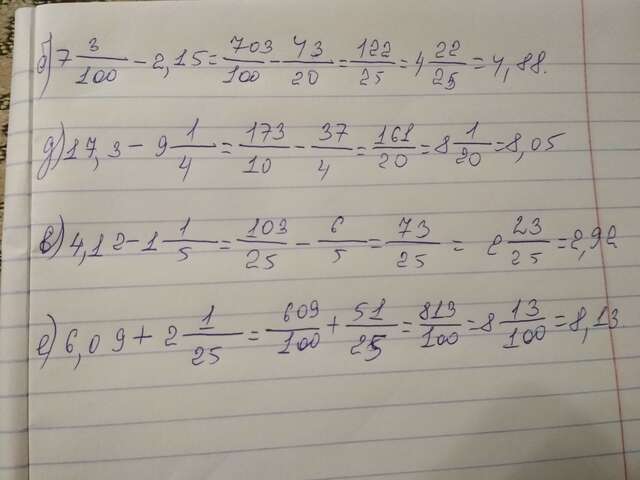 б) 7 3/100 - 2,15 = 703/100 - 43/20 = 122/25 = 4 22/25 = 4,88.
д) 17,3 - 9 1/4 = 173/10 - 37/4 = 161/20 = 8 1/20 = 8,05
в) 4,12 - 1 1/5 = 103/25 - 6/5 = 73/25 = 2 23/25 = 2,92
е) 6,09 + 2 1/25 = 609/100 + 51/25 = 813/100 = 8 13/100 = 8,13